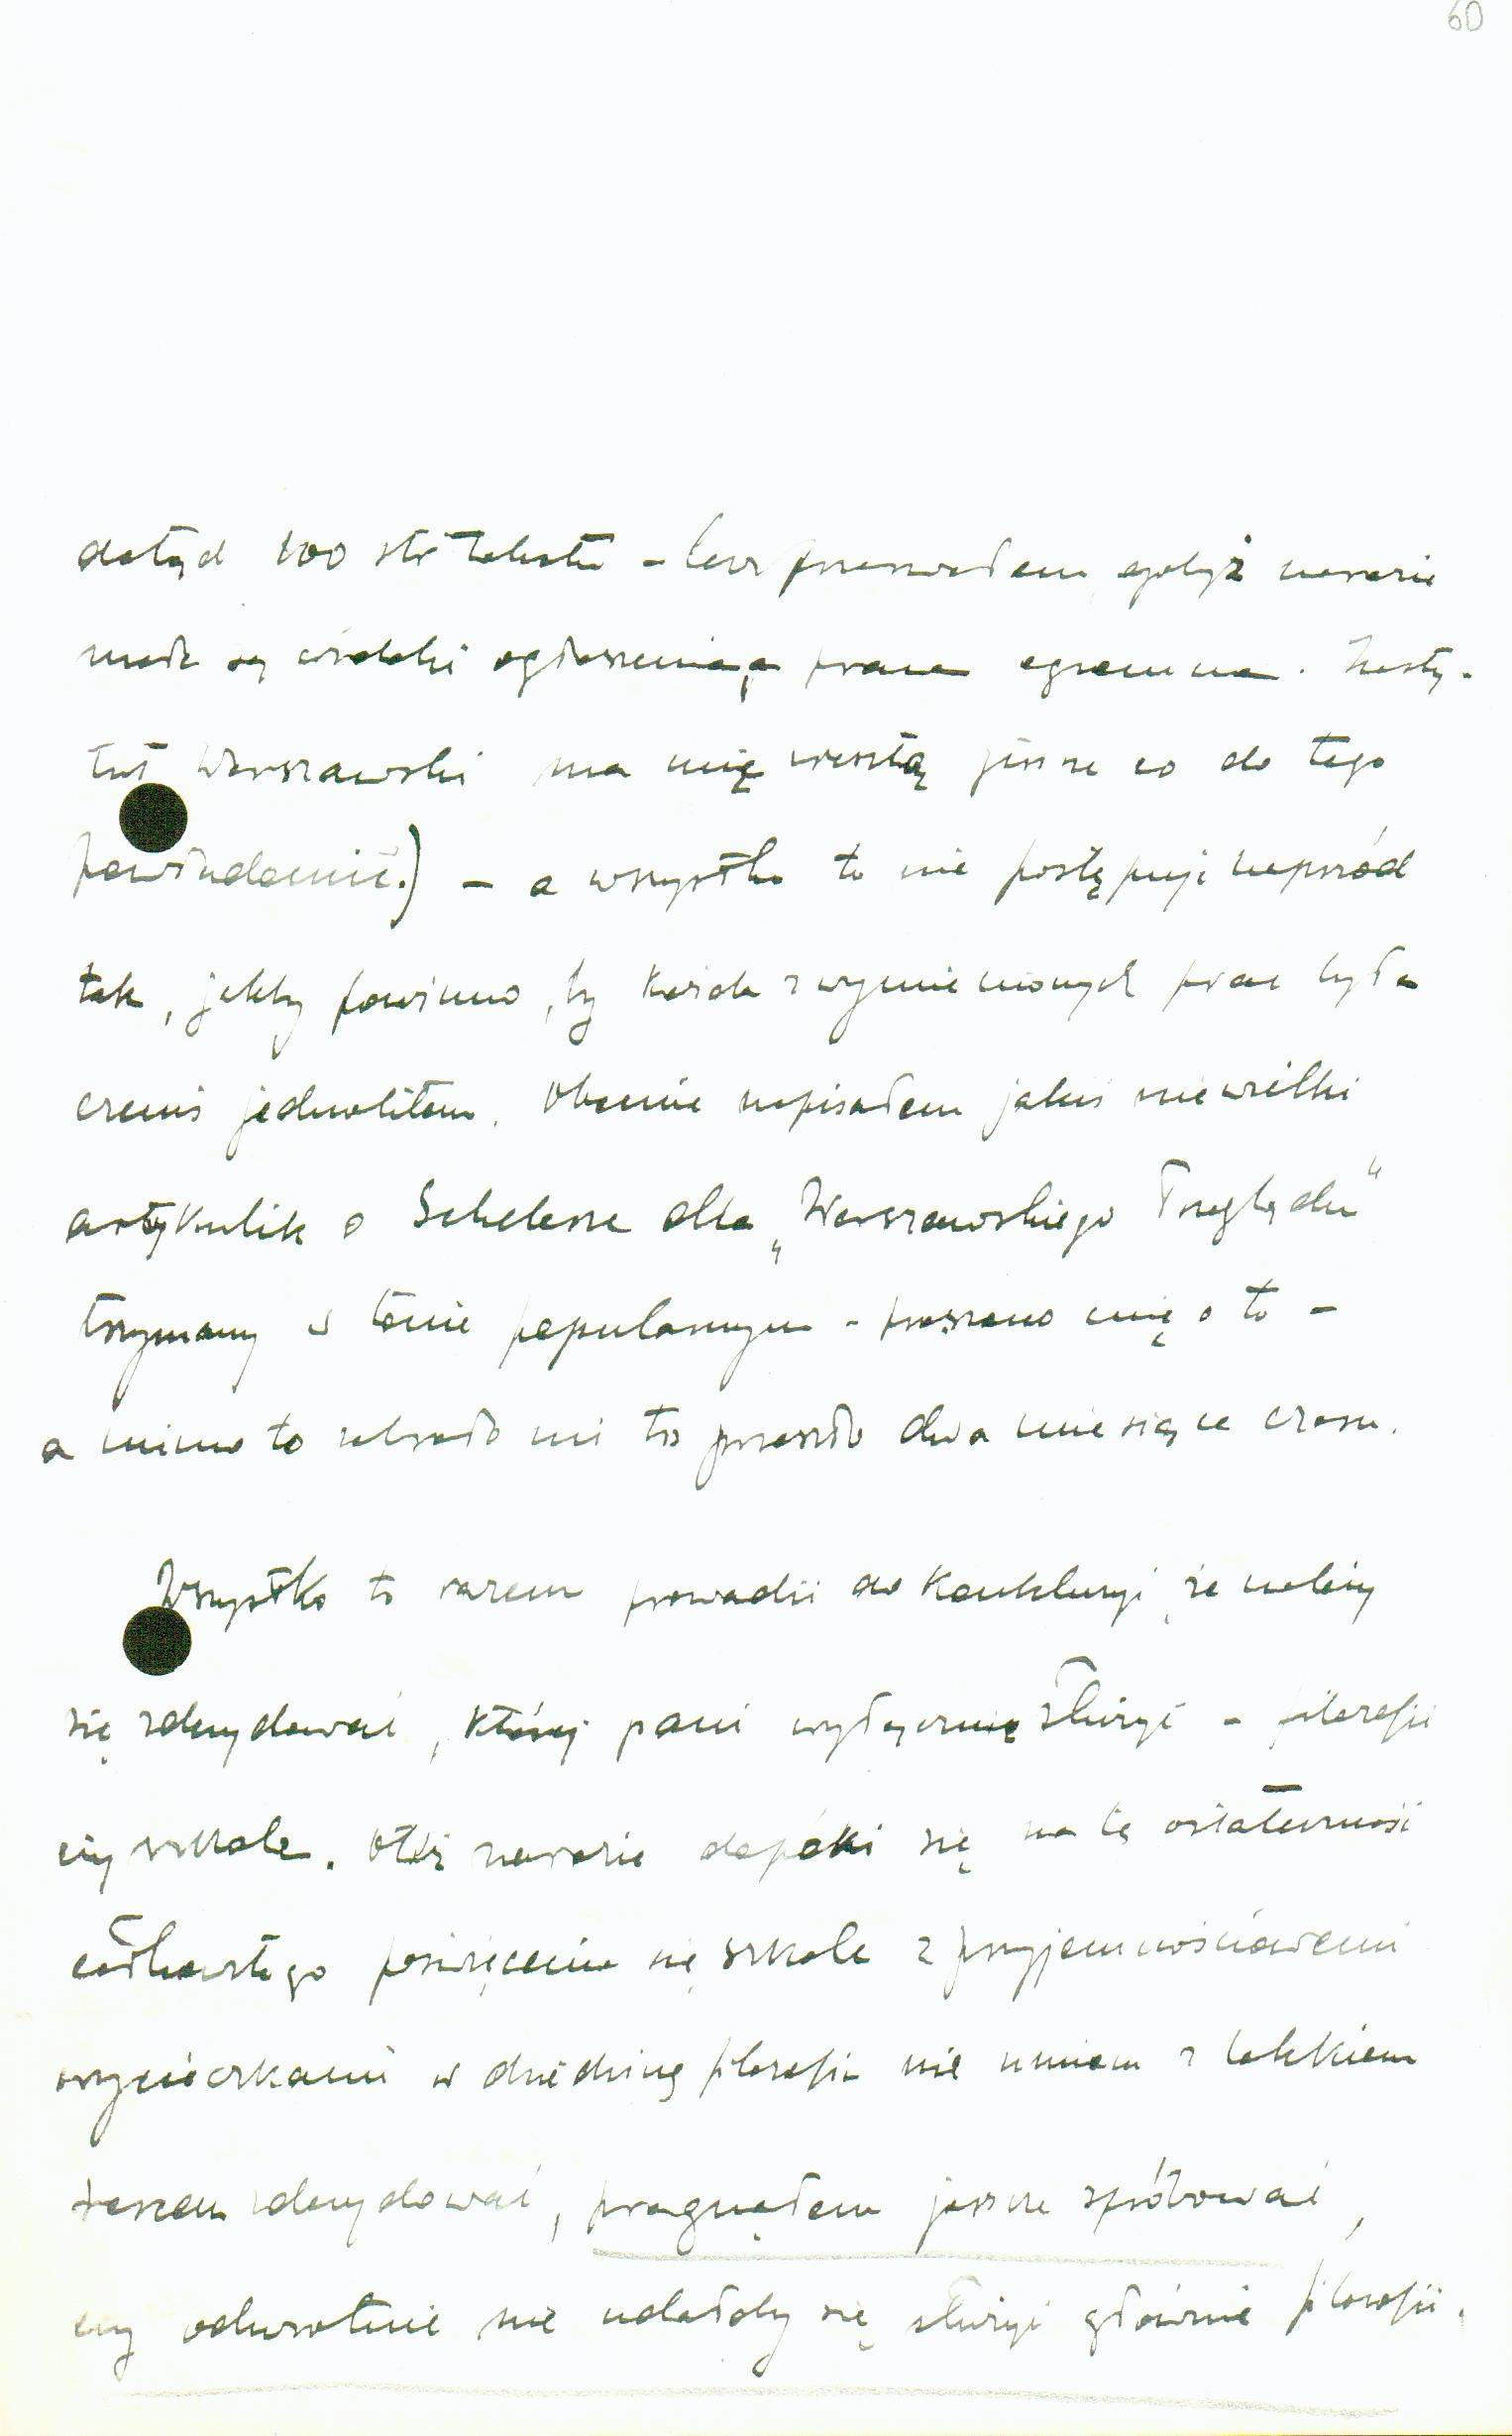 60
dotąd 100 str tekstu – lecz przerwałem, gdyż narazie
małe są widoki ogłoszenia, a praca ogromna. Insty-
tut Warszawski ma mię zresztą jeszcze co do tego
powiadomić.) – a wszystko to nie postępuje naprzód
tak, jakby powinno, by każda z wymienionych prac była
czemś jednolitem. Obecnie napisałem jakiś niewielki
artykulik o Schelerze dla „Warszawskiego Przeglądu"
trzymany w tonie popularnym – proszono mię o to –
a mimo to zabrało mi to przeszło dwa miesiące czasu.
Wszystko to razem prowadzi do konkluzyi, że należy
się zdecydować, której pani wyłącznie służyć – filozofii
czy szkole. Otóż narazie dopóki się na tę ostateczność
całkowitego poświęcenia się szkole z przyjemnościowemi
wycieczkami w dziedzinę filozofii nie umiem z lekkiem
sercem zdecydować, pragnąłem jeszcze spróbować,
czy odwrotnie nie udałoby się służyć głównie filozofii.